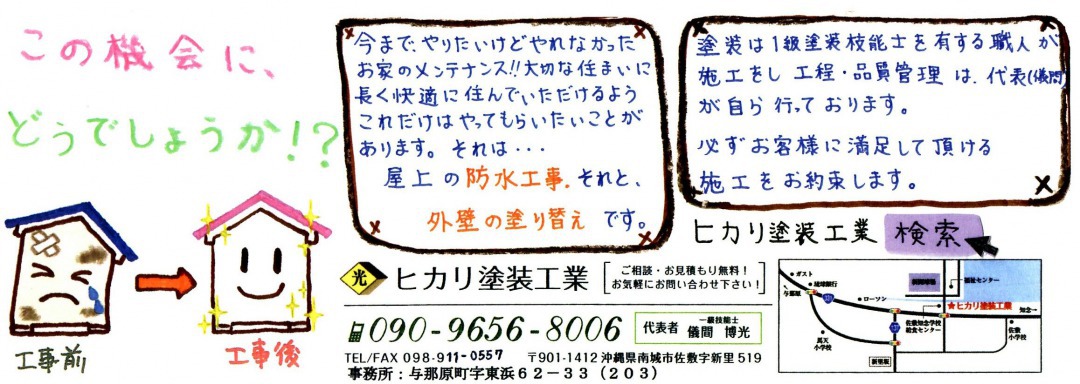 この機会に、
どうでしょうか!?
工事前
工事後
今まで、やりたいけどやれなかった
お家のメンテナンス!!大切な住まいに
長く快適に住んでいただけるよう
これだけはやってもらいたいことが
あります。それは・・・
屋上の防水工事.それと、
外壁の塗り替えです。
塗装は1級塗装技能士を有する職人が
施工をし 工程・品質管理は、代表(儀間)
が自ら行っております。
必ずお客様に満足して頂ける
施工をお約束します。
ヒカリ塗装工業 検索
光 ヒカリ塗装工業
ご相談・お見積もり無料!
お気軽にお問い合わせ下さい!
090-9656-8006
一級技能士
代表者 儀間 博光
TEL/FAX 098-911-0557 〒901-1412 沖縄県南城市佐敷字新里519
事務所:与那原町字東浜62-33(203)
ガスト
琉球銀行
与那原
ローソン
福祉センター
★ヒカリ塗装工業
知念→
馬天
小学校
佐敷知念学校
給食センター
佐敷
小学校
新里坂